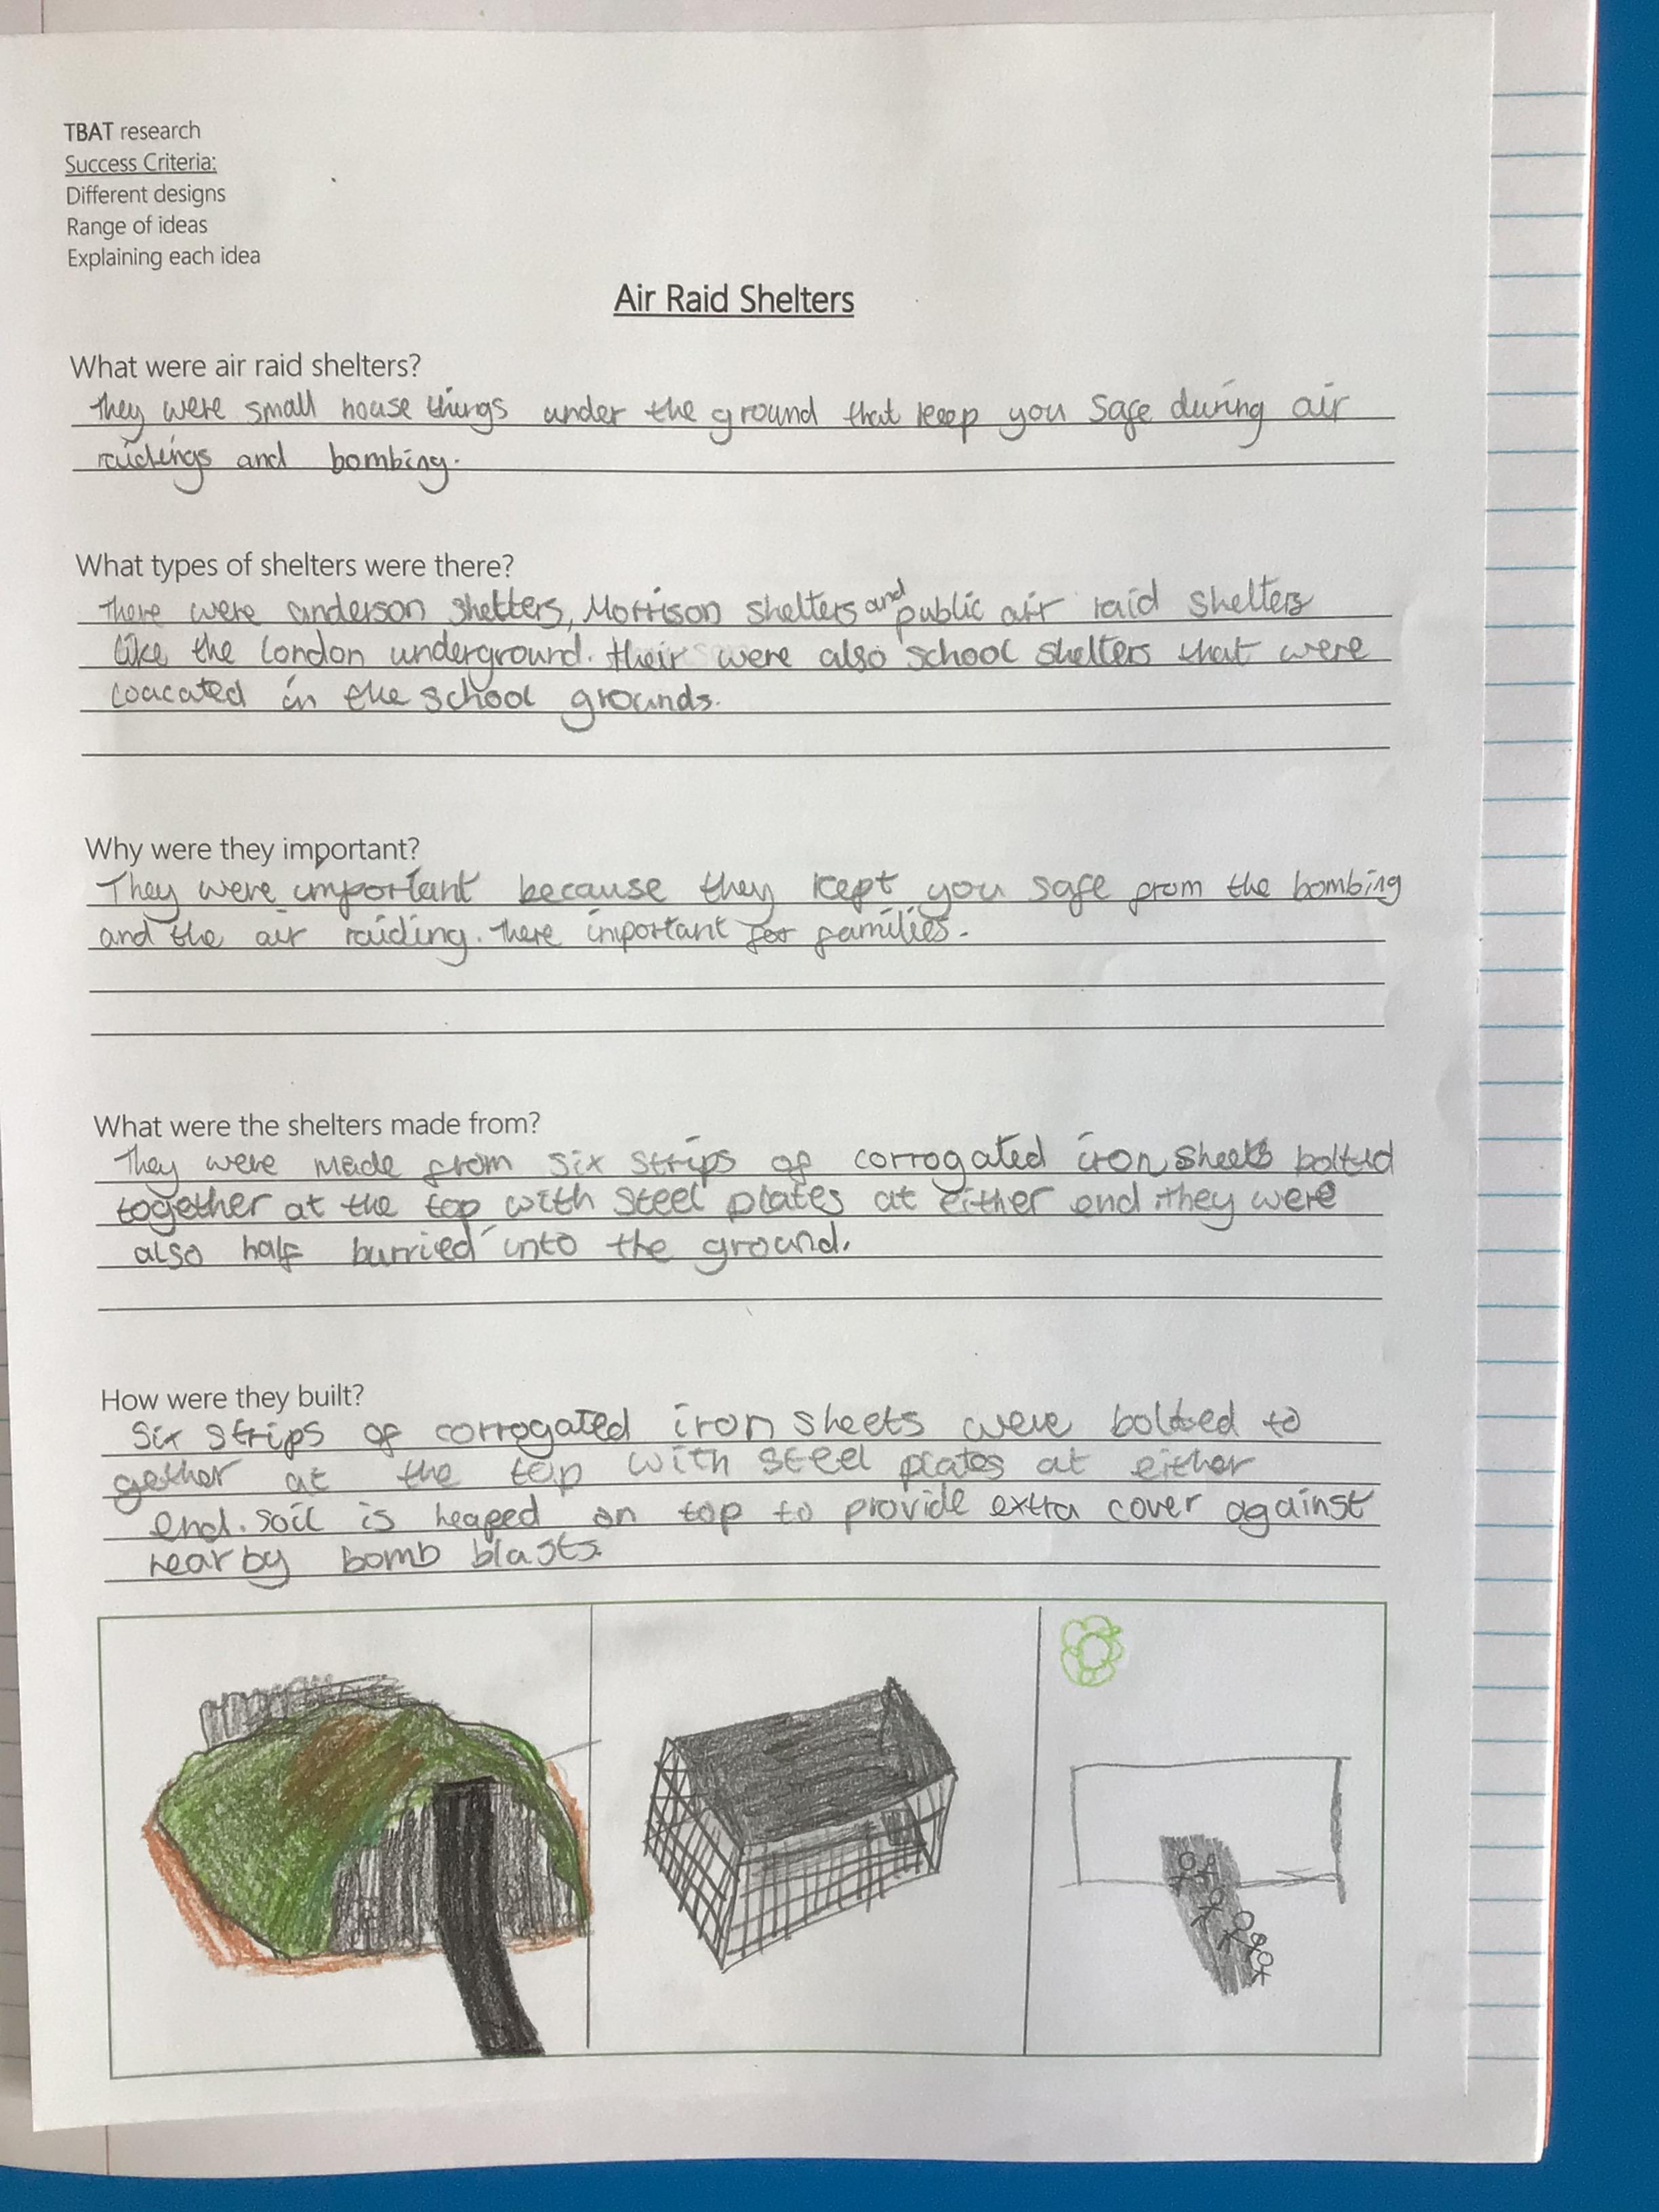 TBAT research
Success Criteria:
Different designs
Range of ideas
Explaining each idea
Air Raid Shelters
What were air raid shelters?
They were small house things under the ground that keep you safe during air
raidings and bombing.
What types of shelters were there?
There were anderson shelters, Morrison shelters and public air raid shelters
like the london underground. their were also school shelters that were
loacated in the school grounds.
Why were they important?
They were important because they kept you safe from the bombing
and the air raiding. There important for families.
What were the shelters made from?
They were made from six strips of corrogated iron sheets bolted
together at the top with steel plates at either end. They were
also half burried into the ground.
How were they built?
Six strips of corrogated iron sheets were bolted to
gether at the top with steel plates at either
end. soil is heaped on top to provide extra cover against
nearby bomb blasts.